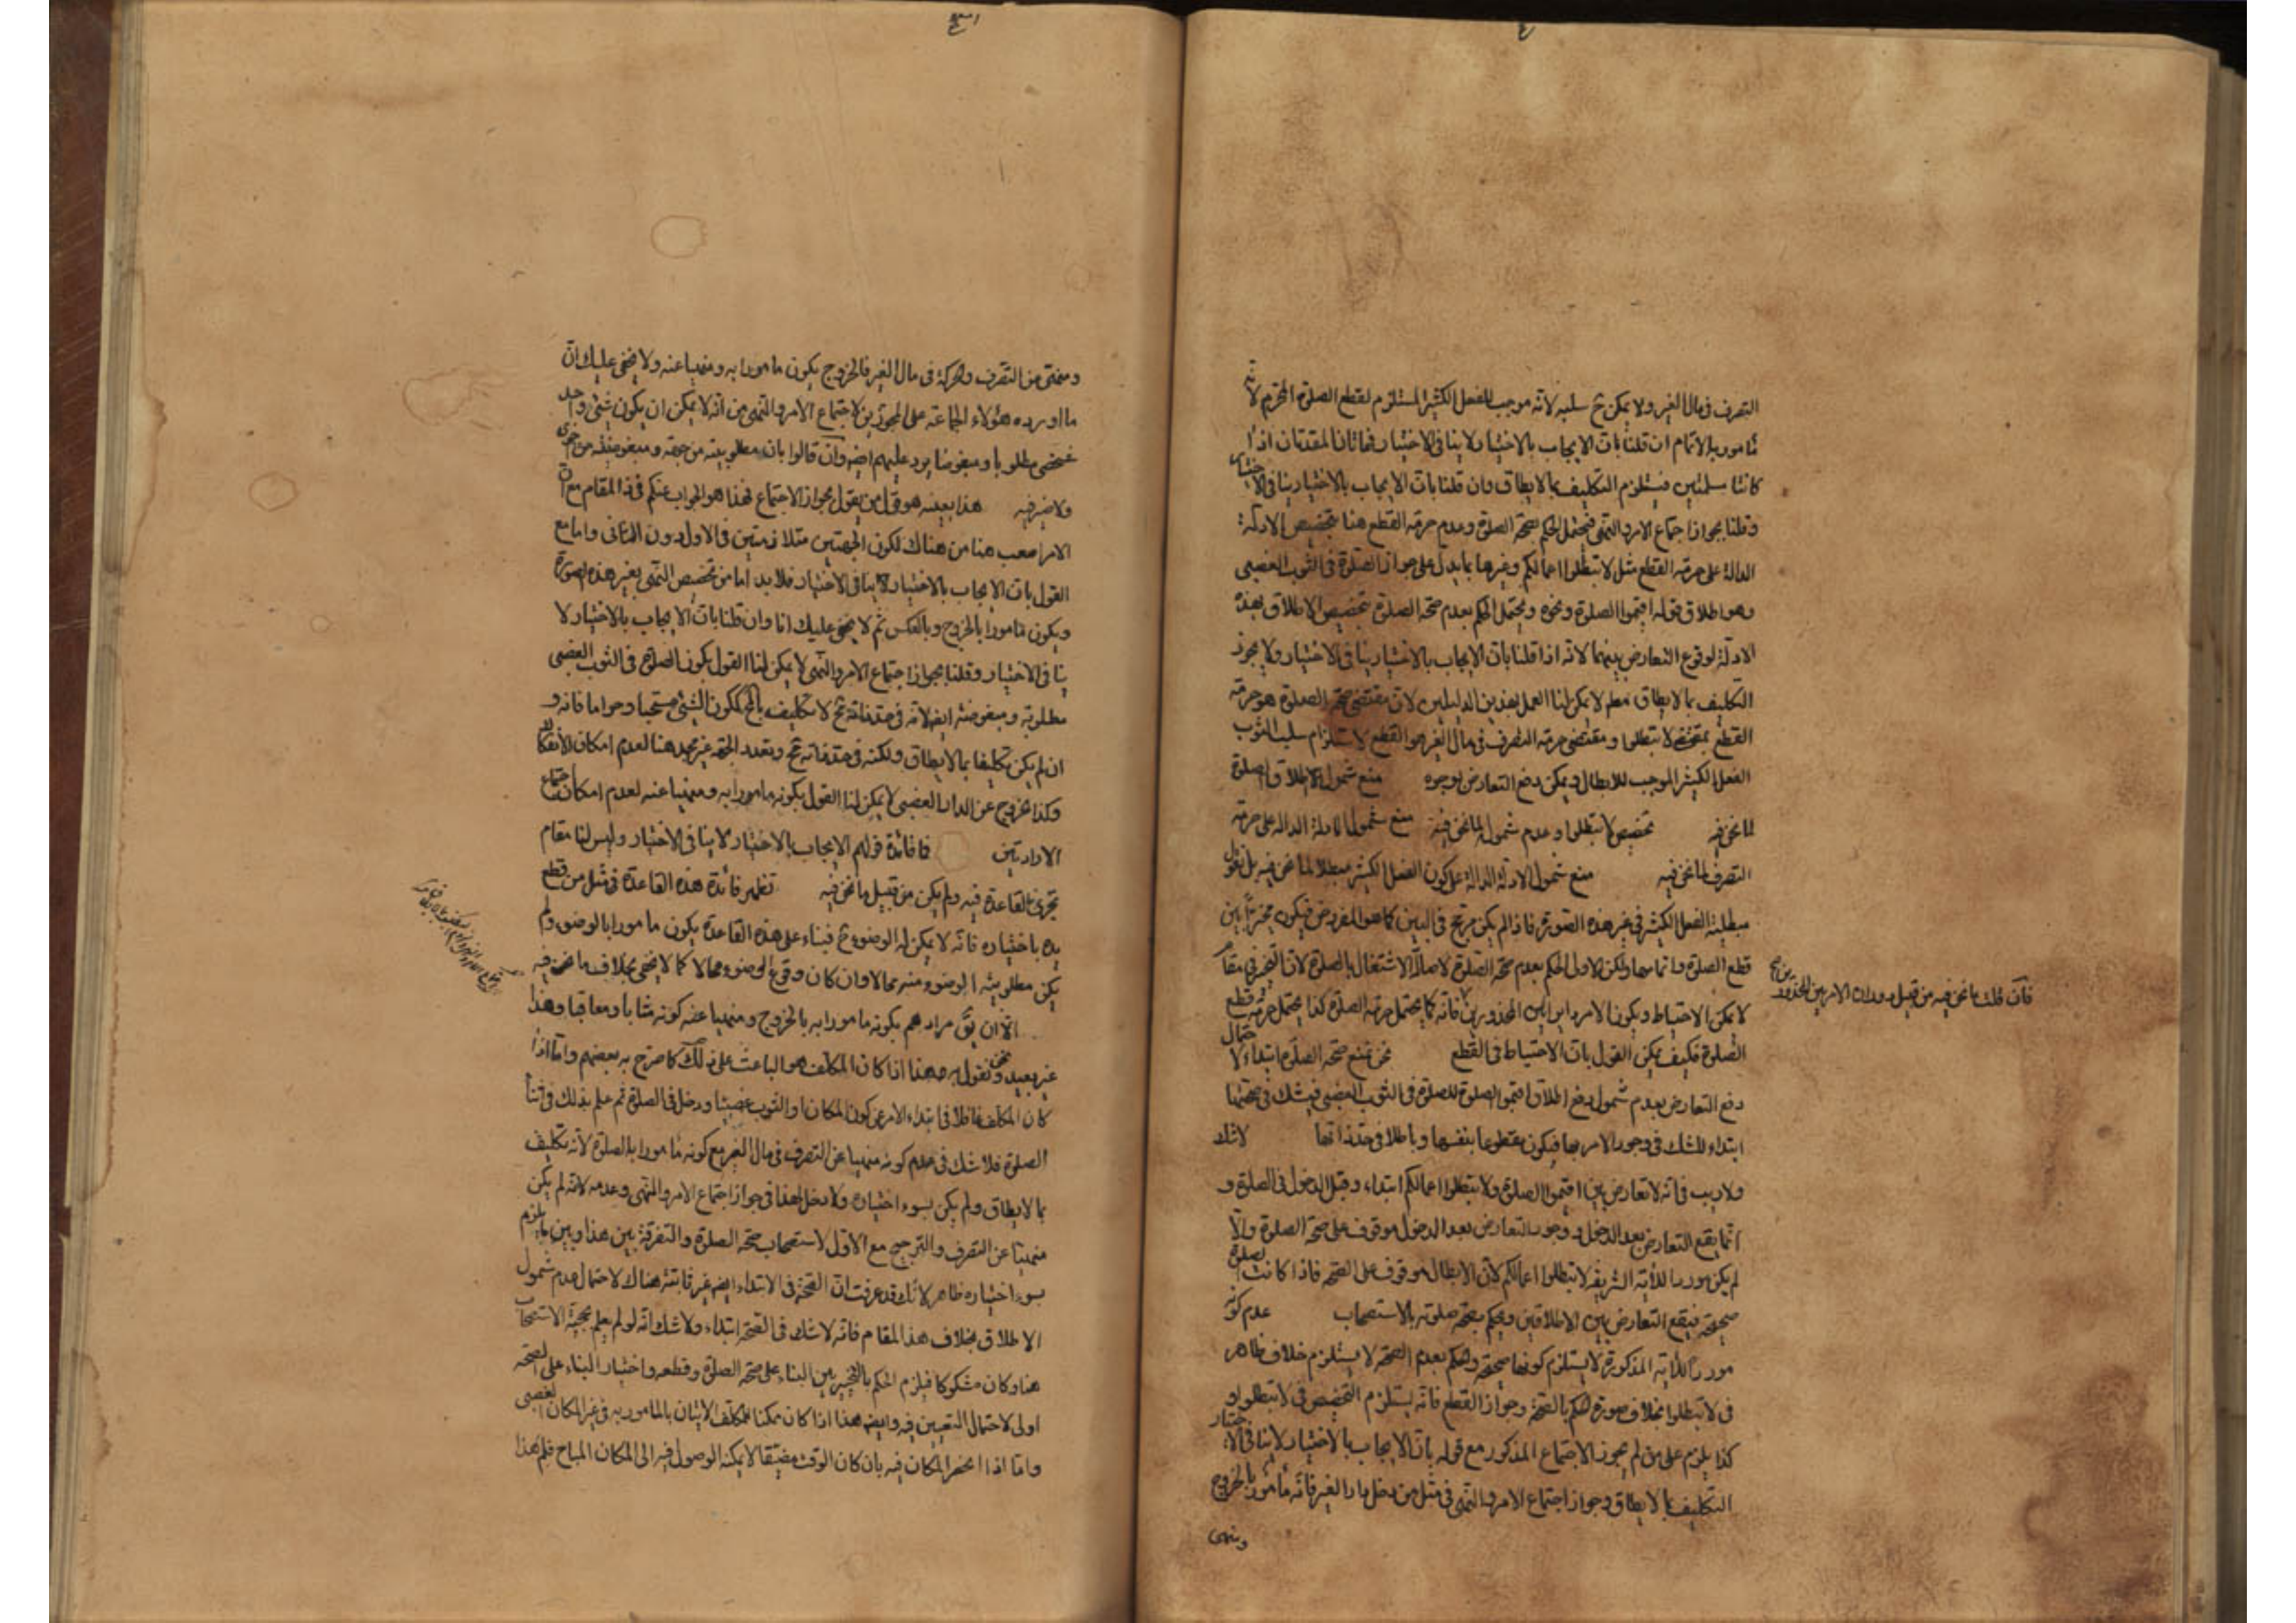 التصرف فى مال الغير ولا يمكن ح سلبه لانه موجب للفعل الكثير المستلزم لقطع الصلوة المحرم لانه
مأمور بالاتمام ان قلنا بان الايجاب بالاختيار لا ينافى الاختيار فهاتان المقدمتان اذا
كانتا مسلمتين فيستلزم التكليف بما لا يطاق وان قلنا بان الايجاب بالاختيار ينافى الاختيار
وقلنا بجواز اجتماع الامر والنهى فيحتمل الحكم بصحة الصلوة وعدم حرمة القطع هنا بتخصيص الادلة
الدالة على حرمة القطع مثل لا تبطلوا اعمالكم وغيرها بما يدل على جواز الصلوة فى الثوب الغصبى
وهو اطلاق قوله اقيموا الصلوة ونحوه ويحتمل الحكم بعدم صحة الصلوة بتخصيص الاطلاق بهذه
الادلة لوقوع التعارض بينهما لانه اذا قلنا بان الايجاب بالاختيار ينافى الاختيار ولا يجوز
التكليف بما لا يطاق معلم لا يمكن لنا العمل بهذين الدليلين لان مقتضى صحة الصلوة هو حرمة
القطع بمقتضى لا تبطلوا ومقتضى حرمة التصرف فى مال الغير هو القطع لاستلزام سلب الثوب
الفعل الكثير الموجب للابطال ويمكن دفع التعارض بوجوه منع شمول الاطلاق لصلوة
لما نحن فيه تخصيص لا تبطلوا وعدم شموله لما نحن فيه منع شمول الادلة الدالة على حرمة
التصرف لما نحن فيه منع شمول الادلة الدالة على كون الفعل الكثير مبطلا لما نحن فيه بل نقول
مبطلية الفعل الكثير فى غير هذه الصورة فاذا لم يكن مرجح فى البين كما هو المفروض فيكون مخيرا بين
قطع الصلوة واتمامها ولكن الاولى الحكم بعدم صحة الصلوة لاصالة الاشتغال بالصلوة لان التخيير فى مقام
فان قلت ما نحن فيه من قبيل دوران الامر بين المحذورين ح
لا يمكن الاحتياط ويكون الامر دايرا بين المحذورين فانه كما يحتمل حرمة الصلوة كذا يحتمل حرمة قطع
الصلوة فكيف يمكن القول بان الاحتياط فى القطع نحن نمنع صحة الصلوة ابتداء لاحتمال
دفع التعارض بعدم شمول دفع اطلاق اقيموا الصلوة للصلوة فى الثوب الغصبى فيشك فى صحتها
ابتداء للشك فى وجود الامر بها فيكون مقطوعا بنفسها وباطلا فى حد ذاتها لا شك
ولا ريب فى انه لا تعارض بين اقيموا الصلوة ولا تبطلوا اعمالكم ابتداء وقبل الدخول فى الصلوة و
انما يقع التعارض بعد الدخول ووجود التعارض بعد الدخول موقوف على صحة الصلوة والا
لم يكن موردا للاية الشريفة لا تبطلوا اعمالكم لان الابطال موقوف على الصحة فاذا كانت الصلوة
صحيحة فيقع التعارض بين الاطلاقين ويحكم بصحة صلوته بالاستصحاب عدم كونه
موردا للاية المذكورة لا يستلزم كونها صحيحة والحكم بعدم الصحة لا يستلزم خلاف ظاهر
فى لا تبطلوا بخلاف صورة الحكم بالصحة وجواز القطع فانه يستلزم التخصيص فى لا تبطلوا و
كذا يلزم على من لم يجوز الاجتماع المذكور مع قوله بان الايجاب بالاختيار لا ينافى الاختيار
التكليف بما لا يطاق وجواز اجتماع الامر والنهى فى مثل من دخل دار الغير فانه مأمور بالخروج
ومنهى
ومنهى من التصرف والحركة فى مال الغير فالخروج يكون مامورا به ومنهيا عنه ولا يخفى عليك ان
ما اورده هؤلاء الجماعة على المجوزين لاجتماع الامر والنهى من انه لا يمكن ان يكون شئ واحد
شخصى مطلوبا ومبغوضا يرد عليهم ايضا وان قالوا بان مطلوبيته من جهة ومبغوضيته من اخرى
ولا ضير فيه هذا بعينه هو قول من يقول بجواز الاجتماع فهذا هو الجواب عنكم فى ذا المقام مع ان
الامر اصعب هنا من هناك لكون الجهتين متلازمتين فى الاول دون الثانى واما مع
القول بان الايجاب بالاختيار لا ينافى الاختيار فلا بد اما من تخصيص النهى بغير هذه الصورة
ويكون مامورا بالخروج وبالعكس ثم لا يخفى عليك انا وان قلنا بان الايجاب بالاختيار لا
ينافى الاختيار وقلنا بجواز اجتماع الامر والنهى لا يمكن لنا القول بكون الصلوة فى الثوب الغصبى
مطلوبة ومبغوضة ايضا لانه فى حد ذاته ح لا تكليف بالمحال ككون الشئ مستحبا وحراما فانه و
ان لم يكن تكليفا بما لا يطاق ولكنه فى حد ذاته ح وتعدد الجهة غير مجد هنا لعدم امكان الانفكاك
وكذا الخروج عن الدار الغصبى لا يمكن لنا القول بكونه مامورا به ومنهيا عنه لعدم امكان اجتماع
الارادتين فما فائدة قولهم الايجاب بالاختيار لا ينافى الاختيار وليس لنا مقام
تجرى القاعدة فيه ولم يكن من قبيل ما نحن فيه تظهر فائدة هذه القاعدة فى مثل من قطع
يده باختياره فانه لا يمكن له الوضوء ح فبناء على هذه القاعدة يكون مامورا بالوضوء ولم
يكن مطلوبية الوضوء منه محالا وان كان وقوع الوضوء محالا كما لا يخفى بخلاف ما نحن فيه
الا ان يق مرادهم بكونه مامورا به بالخروج ومنهيا عنه كونه مثابا ومعاقبا وهذا
غير بعيد ونحن نقول به هذا اذا كان المكلف هو الباعث على ذلك كما صرح به بعضهم واما اذا
كان المكلف غافلا فى ابتداء الامر عن كون المكان او الثوب غصبيا ودخل فى الصلوة ثم علم بذلك فى اثناء
الصلوة فلا شك فى عدم كونه منهيا عن التصرف فى مال الغير مع كونه مامورا بالصلوة لانه تكليف
بما لا يطاق ولم يكن بسوء اختياره ولا دخل لهذا فى جواز اجتماع الامر والنهى وعدمه لانه لم يكن
منهيا عن التصرف والترجيح مع الاول لاستصحاب صحة الصلوة والتفرقة بين هذا وبين ما يلزم
بسوء اختياره ظاهر لانك قد عرفت ان الصحة فى الابتداء ايضا غير ثابتة هناك لاحتمال عدم شمول
الاطلاق بخلاف هذا المقام فانه لا شك فى الصحة ابتداء ولا شك انه لو لم يعلم بحجية الاستصحاب
هنا وكان مشكوكا فيلزم الحكم بالتخيير بين البناء على صحة الصلوة وقطعه واختيار البناء على الصحة
اولى لاحتمال التعيين فيه وايضا هذا اذا كان ممكنا للمكلف الاتيان بالمامور به فى غير المكان الغصبى
واما اذا انحصر المكان فيه بان كان الوقت مضيقا لا يمكنه الوصول فيه الى المكان المباح فلم هذا